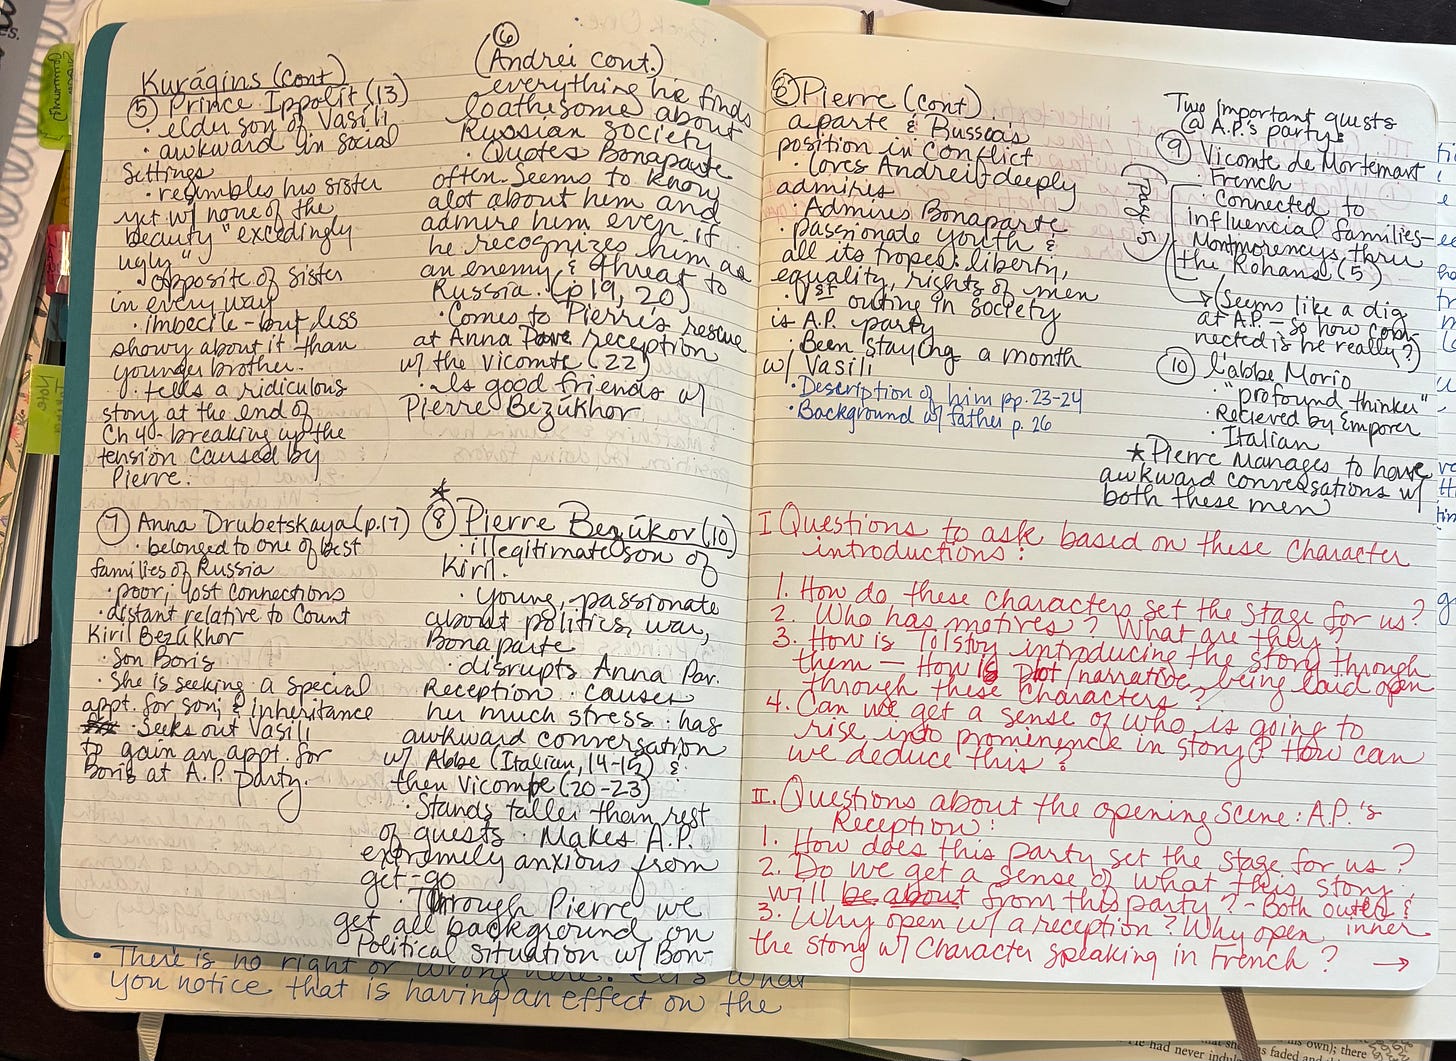 Kurágins (cont)
⑤ Prince Ippolit (13)
· elder son of Vasili
· awkward in social
settings
· resembles his sister
yet w/ none of the
beauty "excedingly
ugly"
· opposite of sister
in every way
· imbecile - but less
showy about it than
younger brother.
· tells a ridiculous
story at the end of
Ch 4 - breaking up the
tension caused by
Pierre.
⑦ Anna Drubetskaya (p.17)
· belonged to one of best
families of Russia
· poor; lost connections
· distant relative to Count
Kiril Bezúkhor
· son Boris
· She is seeking a special
appt. for son; & inheritance
· Seeks out Vasili
to gain an appt. for
Boris at A.P. party.
⑥
(Andrei cont.)
everything he finds
loathesome about
Russian society
· Quotes Bonaparte
often. Seems to know
alot about him and
admire him even if
he recognizes him as
an enemy & threat to
Russia. (p 19, 20)
· Comes to Pierre's rescue
at Anna Pav reception
w/ the Vicomte (22)
· Is good friends w/
Pierre Bezúkhor
★
⑧ Pierre Bezúkov (10)
· illegitimate son of
Kiril.
· Young, passionate
about politics, war,
Bonaparte
· disrupts Anna Pav.
Reception · causes
her much stress · has
awkward conversation
w/ Abbe (Italian, 14-15) &
then Vicompte (20-23)
· Stands taller than rest
of guests · Makes A.P.
extremely anxious from
get-go
· Through Pierre we
get all background on
Political situation w/ Bon-
⑧ Pierre (cont)
aparte & Russia's
position in conflict
· loves Andrei - deeply
admires
· Admires Bonaparte
· passionate youth &
all its tropes: liberty,
equality, rights of men
· 1st outing in society
is A.P. party
· Been staying a month
w/ Vasili
· Description of him pp. 23-24
· Background w/ father p. 26
Two important guests
@ A.P.'s party:
⑨ Vicomte de Mortemart
· French
· Connected to
influential families -
Montmorencys thru
the Rohans (5)
page 5
(Seems like a dig
at A.P. - so how con-
nected is he really?)
⑩ l'abbe Morio
· "profound thinker"
· Recieved by Emporer
· Italian
★ Pierre manages to have
awkward conversations w/
both these men
I Questions to ask based on these character
introductions:
1. How do these characters set the stage for us?
2. Who has motives? What are they?
3. How is Tolstoy introducing the story through
them — How is plot/narrative being laid open
through these characters?
4. Can we get a sense of who is going to
rise into prominence in story? How can
we deduce this?
II. Questions about the opening scene: A.P.'s
Reception:
1. How does this party set the stage for us?
2. Do we get a sense of what this story
will be about from this party? - Both outer &
inner
3. Why open w/ a reception? Why open
the story w/ character speaking in French? →
· There is no right or wrong here. It's what
you notice that is having an effect on the
He had never indul